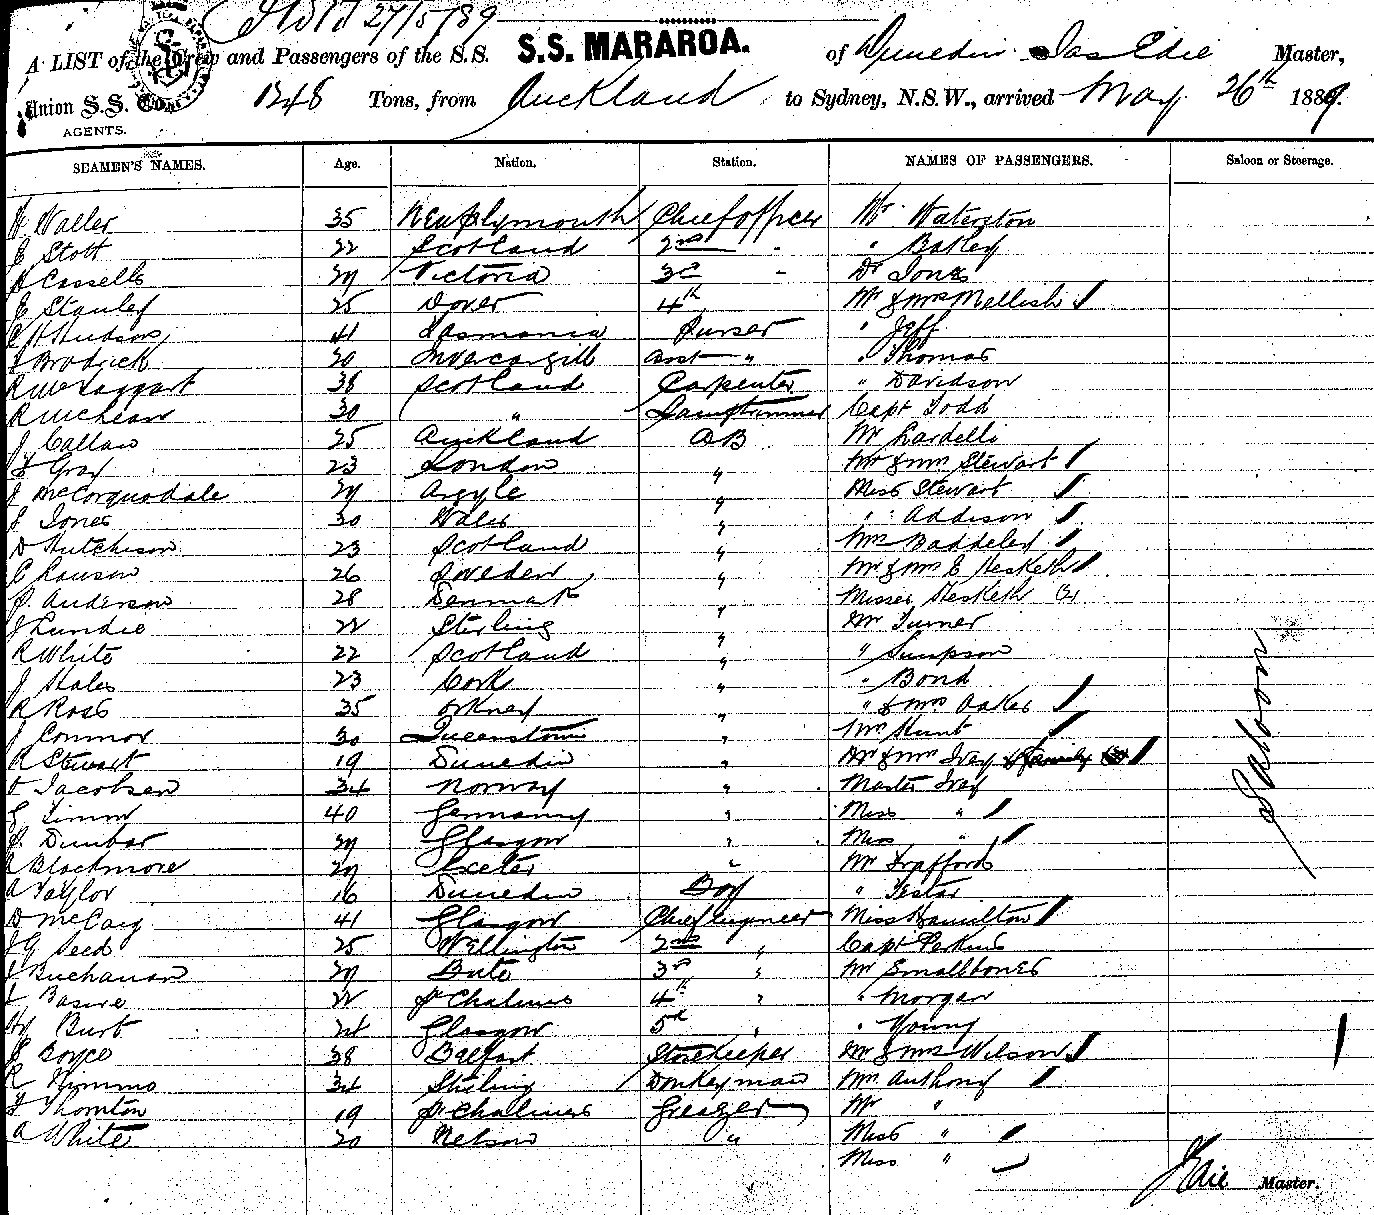 27/5/89
A LIST of the Crew and Passengers of the S.S. S.S. MARAROA. of Dunedin Jas Edie Master,
Union S.S. Co. 1248 Tons, from Auckland to Sydney, N.S.W., arrived May 26th 1889.
AGENTS.
SEAMEN'S NAMES. Age. Nation. Station. NAMES OF PASSENGERS. Saloon or Steerage.
Waller 35 New Plymouth Chief officer Mr. Waterston
E Stott 22 Scotland 2nd " " Batley
Cassells 29 Victoria 3rd " Dr Jones
E Stanley 25 Dover 4th Mr & Mrs Mellish
Hudson 41 Tasmania Purser " Jeff
Brodrick 20 Invercargill Asst " " Thomas
R McTaggart 38 Scotland Carpenter " Davidson
R McLean 30 " Lamptrimmer Capt Todd
J Callan 25 Auckland AB Mr Lardelli
Gray 23 London " Mr & Mrs Stewart
McCorquodale 29 Argyle " Miss Stewart
Jones 30 Wales " " Addison
D Hutchison 23 Scotland " Mrs Baddeley
26 Sweden " Mr & Mrs E Hesketh
Anderson 28 Denmark " Misses Hesketh (2)
J Lundie 22 Sterling " Mr Turner
R White 22 Scotland " " Simpson
J Hales 23 Cork " " Bond
R Ross 35 Orkney " " & Mrs Oakes
J Connor 30 Queenstown " Mrs Hunt
R Stewart 19 Dunedin " Mr & Mrs Ivey & family
Jacobsen 34 Norway " Master Ivey
G Timm 40 Germany " Miss "
Dunbar 29 Glasgow " Miss "
Blackmore 29 Exeter " Mr Trafford
A Taylor 16 Dunedin Boy " Testar
D McCaig 41 Glasgow Chief Engineer Miss Hamilton
Seed 25 Wellington 2nd " Capt Perkins
Buchanan 29 Bute 3rd " Mr Smallbones
22 Pt Chalmers 4th " " Morgan
Burt 24 Glasgow 5th " " Young
Boyce 38 Belfast Storekeeper Mr & Mrs Wilson
R Nimmo 34 Stirling Donkeyman Mrs Anthony
Thornton 19 Pt Chalmers Greaser Mr "
A White 20 Nelson " Miss "
Miss "
Saloon
J Edie Master.